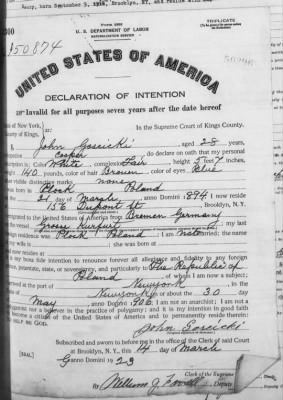 born September 5, 1918, Brooklyn, NY, and
Form 2202
U. S. DEPARTMENT OF LABOR
NATURALIZATION SERVICE
TRIPLICATE
150874
UNITED STATES OF AMERICA
DECLARATION OF INTENTION
Invalid for all purposes seven years after the date hereof
State of New York,
County of Kings,
In the Supreme Court of Kings County.
John Gosicki aged 28 years,
occupation do declare on oath that my personal
description is: Color White, complexion Fair, height 5 feet 7 inches,
weight 140 pounds, color of hair Brown, color of eyes Blue
other visible distinctive marks none
was born in Plock Poland
on the 21 day of March, anno Domini 1894; I now reside
at Dupont St., Brooklyn, N.Y.
I emigrated to the United States of America from Bremen Germany
on the vessel Gross Kurfurst; my last
foreign residence was Plock Poland; I am not married; the name
of my wife is; she was born at
and now resides at
It is my bona fide intention to renounce forever all allegiance and fidelity to any foreign
prince, potentate, state, or sovereignty, and particularly to The Republic of
Poland of whom I am now a subject;
I arrived at the port of Newyork, in the
State of Newyork, on or about the 30 day
of May, anno Domini 1906; I am not an anarchist; I am not a
polygamist nor a believer in the practice of polygamy; and it is my intention in good faith
to become a citizen of the United States of America and to permanently reside therein:
SO HELP ME GOD.
John Gorcicki
Subscribed and sworn to before me in the office of the Clerk of said Court
at Brooklyn, N. Y., this 14 day of March
[SEAL] anno Domini 1923
Clerk of the Supreme
By William J.